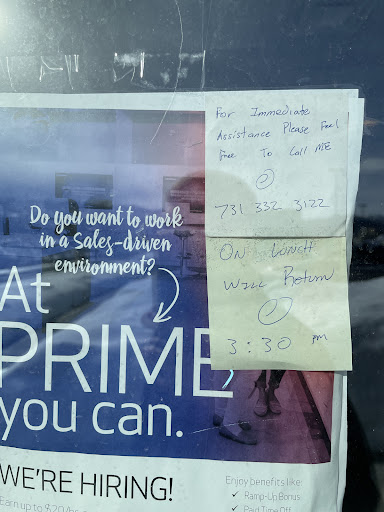 For Immediate
Assistance Please Feel
Free To Call ME
731 332 3122
ON LUNCH
Will Return
3:30 PM
Do you want to work
in a Sales-driven
environment?
At
PRIME
you can.
WE'RE HIRING!
Earn up to
Enjoy benefits like:
✓ Ramp-Up Bonus
✓ Paid Time Off